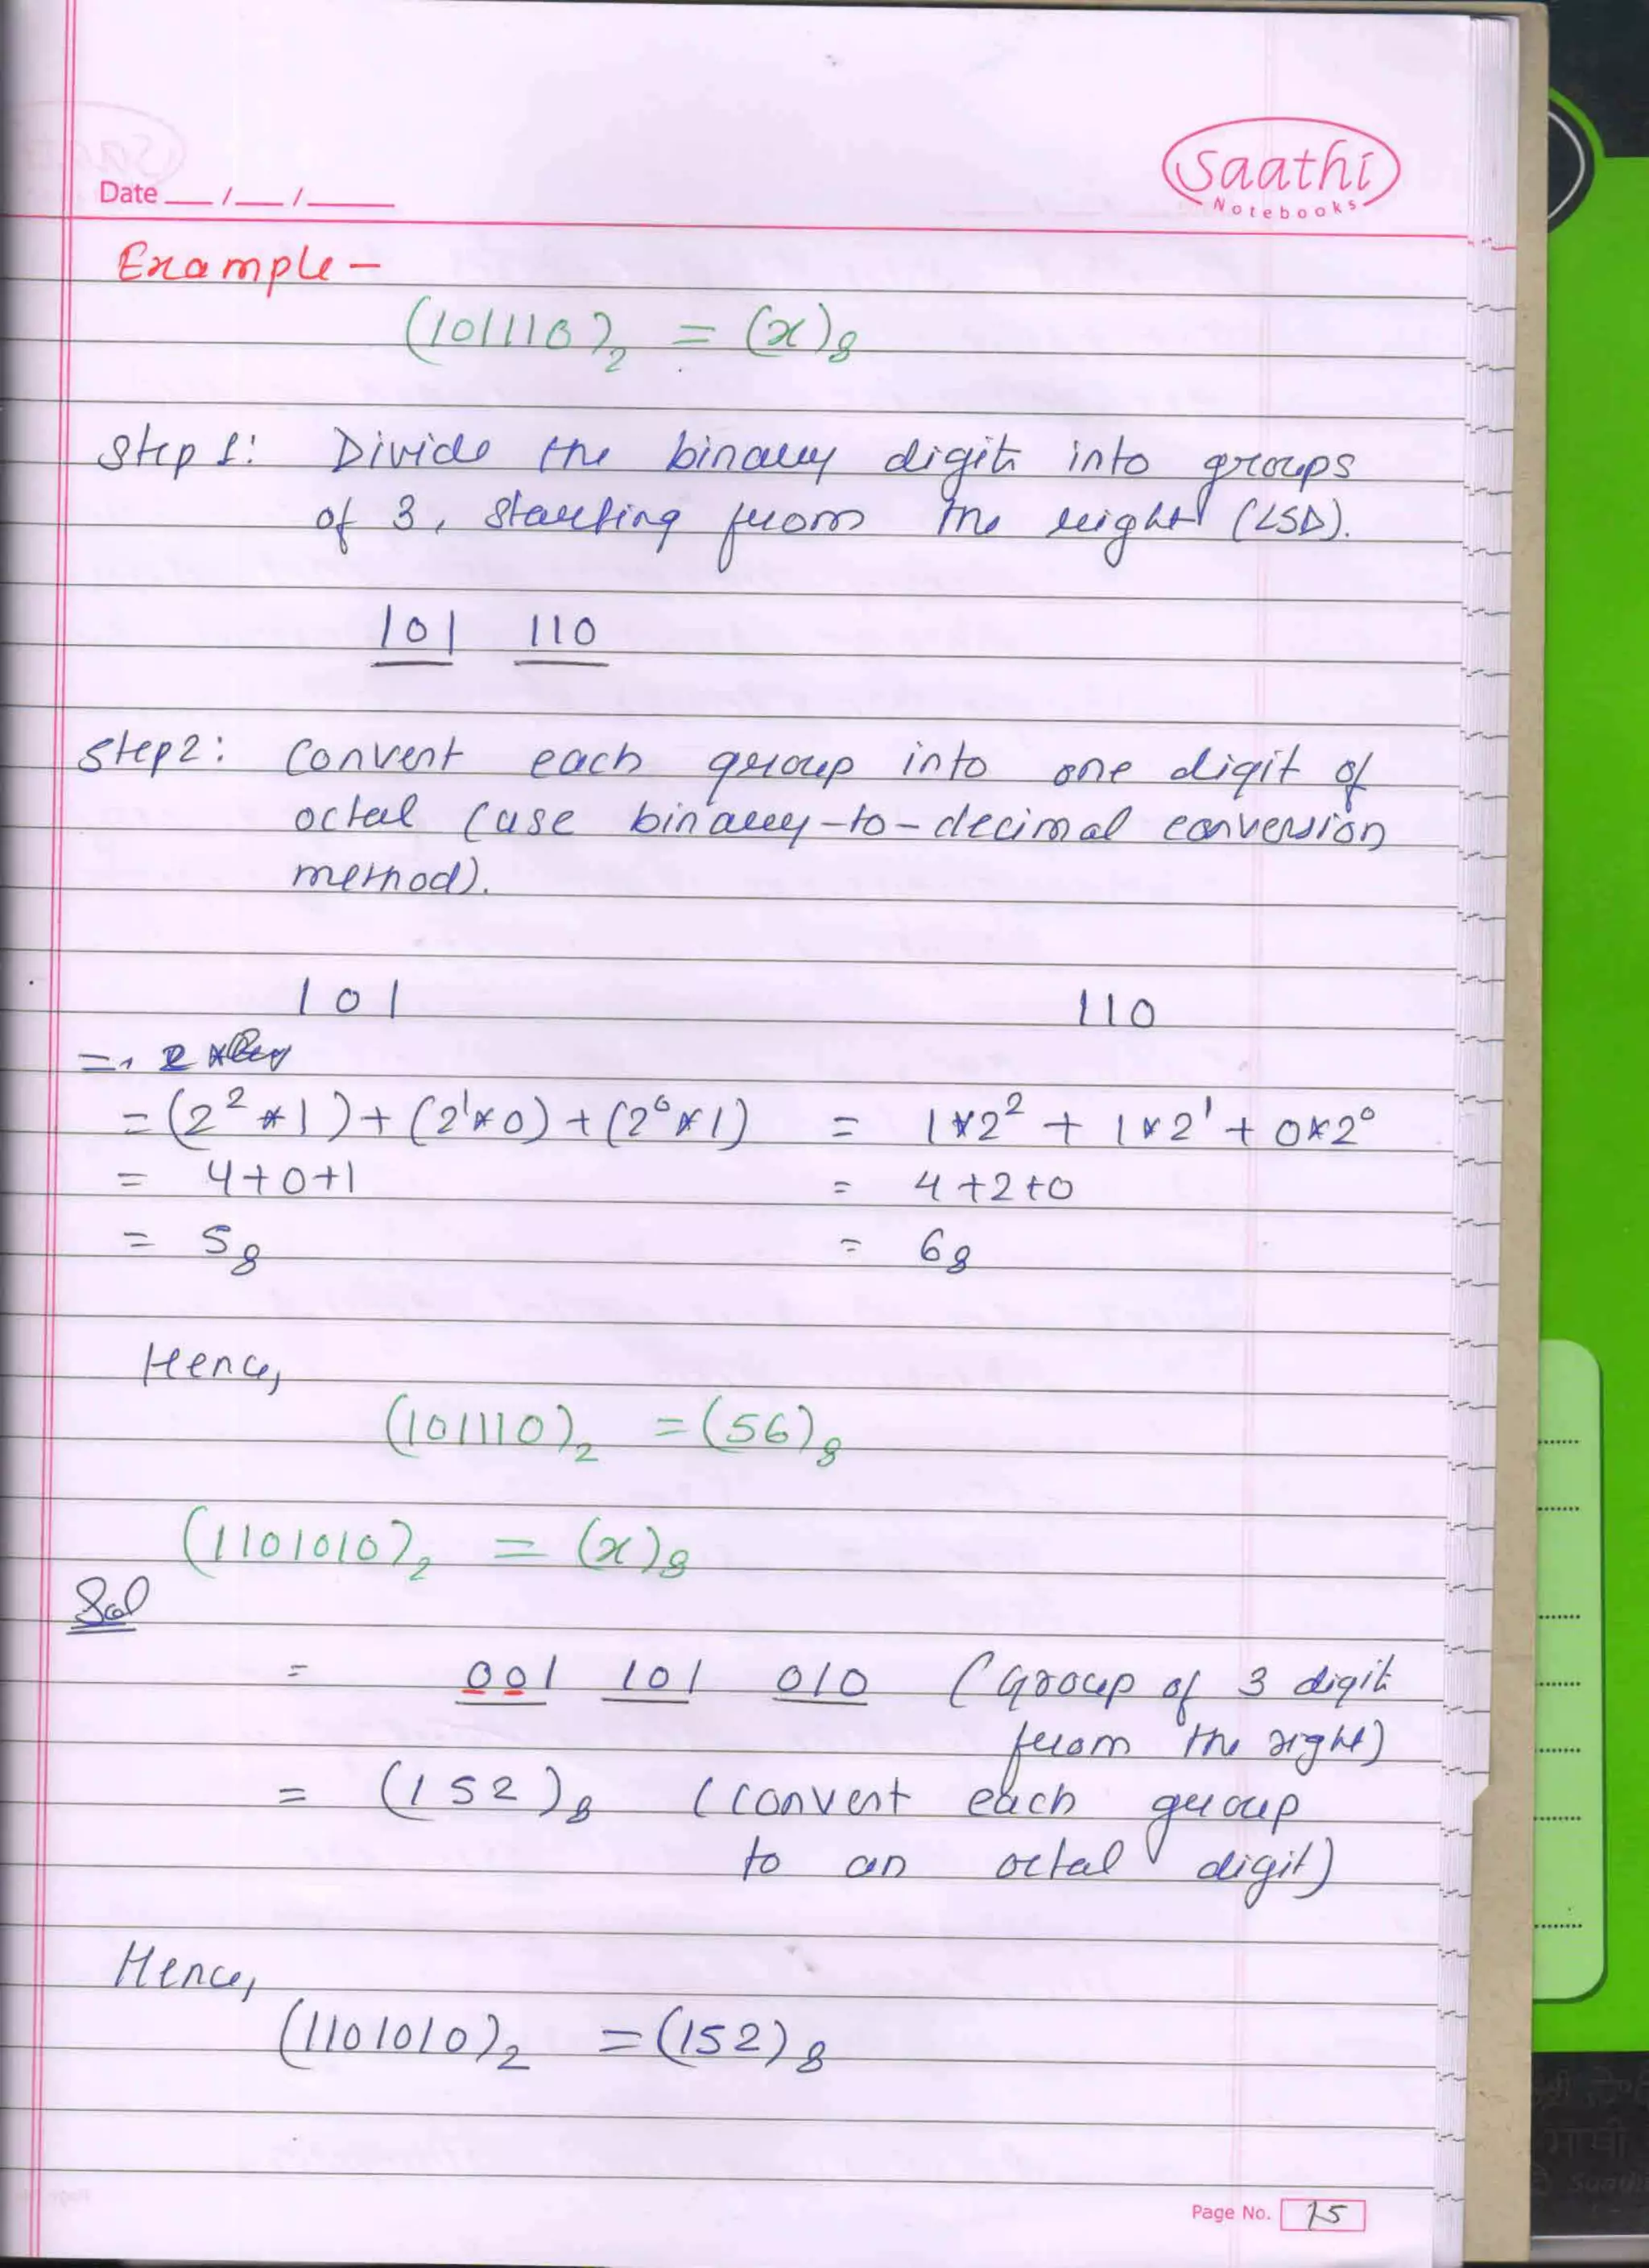 Saathi
Notebooks
Date __/__/____
Example -
(101110)₂ = (x)₈
Step 1: Divide the binary digits into groups
of 3, starting from the right (LSD).
101 110
Step2: Convert each group into one digit of
octal (use binary-to-decimal conversion
method).
101 110
= (2² * 1) + (2¹ * 0) + (2⁰ * 1) = 1*2² + 1*2¹ + 0*2⁰
= 4+0+1 = 4+2+0
= 5₈ = 6₈
Hence,
(101110)₂ = (56)₈
(1101010)₂ = (x)₈
Sol
= 001 101 010 (Group of 3 digits
from the right)
= (152)₈ (Convert each group
to an octal digit)
Hence,
(1101010)₂ = (152)₈
Page No. 15